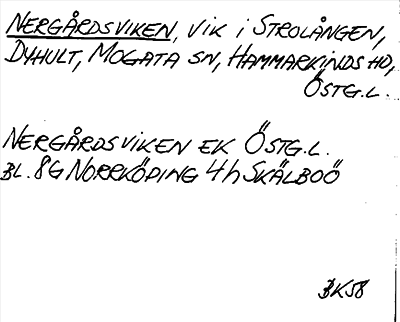 NERGÅRDSVIKEN, VIK I STROLÅNGEN,
DYHULT, MOGATA SN, HAMMARKINDS HD,
ÖSTG.L.
NERGÅRDSVIKEN EK ÖSTG.L.
BL. 8G NORRKÖPING 4h SKÄLBOÖ
BK58